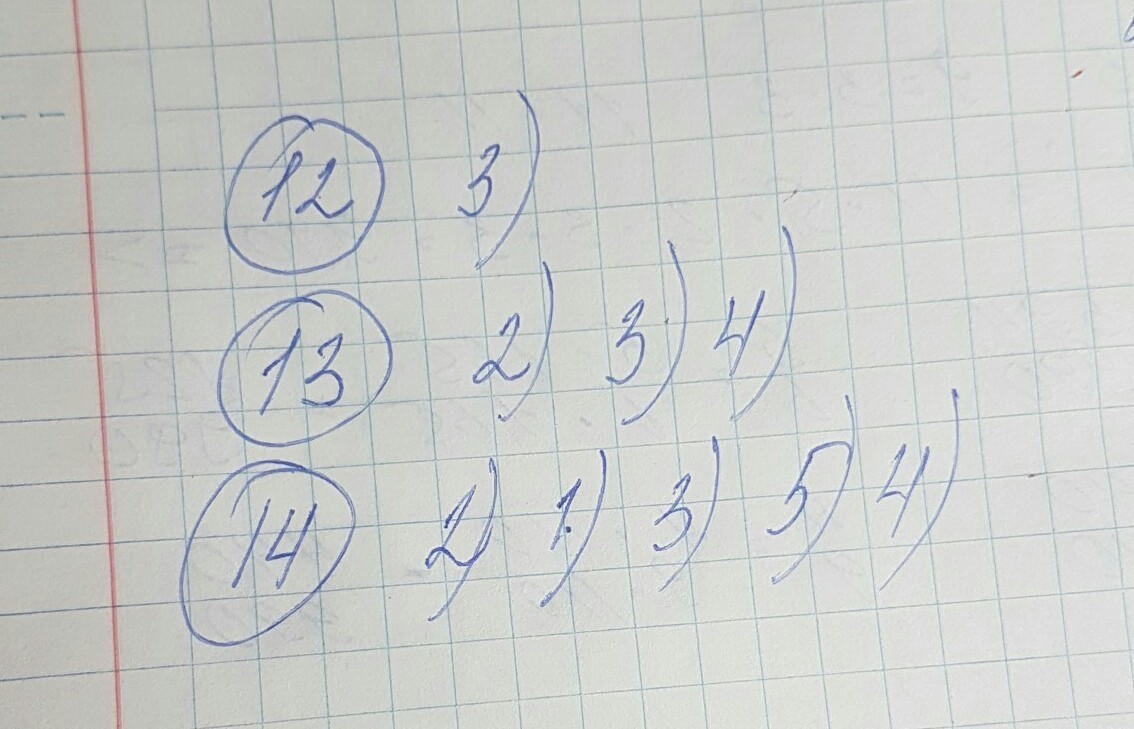 12 3)
13 2) 3) 4)
14 2) 1) 3) 5) 4)